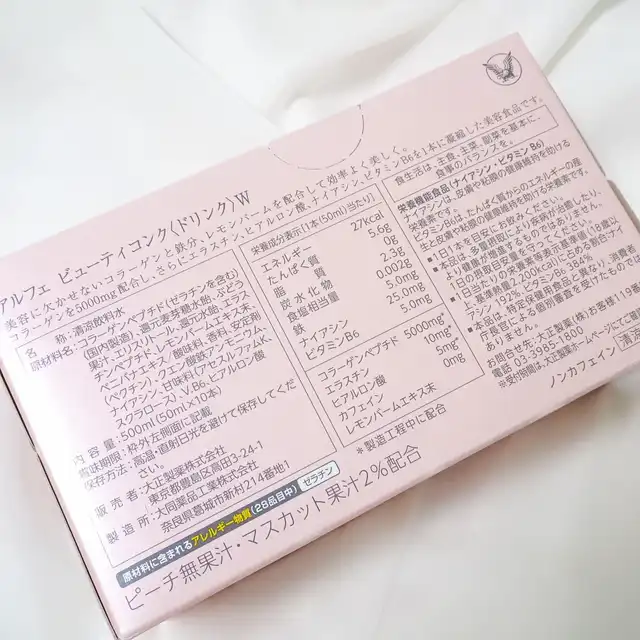 アルフェ ビューティコンク〈ドリンク〉W
美容に欠かせないコラーゲンと鉄分、レモンバームを配合して効率よく美しく。
コラーゲンを5000mg配合し、さらにエラスチン、ヒアルロン酸、ナイアシン、ビタミンB6を1本に凝縮した美容食品です。
名 称:清涼飲料水
原材料名:コラーゲンペプチド(ゼラチンを含む)
(国内製造)、還元麦芽糖水飴、ぶどう
果汁、エリスリトール、還元水飴、エラス
チンペプチド、レモンバームエキス末、
ベニバナエキス/酸味料、香料、安定剤
(ペクチン)、クエン酸鉄アンモニウム、
ナイアシン、甘味料(アセスルファムK、
スクラロース)、V.B6、ヒアルロン酸
内 容 量:500ml(50ml×10本)
賞味期限:枠外左側面に記載
保存方法:高温・直射日光を避けて保存してくだ
さい。
販 売 者:大正製薬株式会社
東京都豊島区高田3-24-1
製 造 所:大同薬品工業株式会社
奈良県葛城市新村214番地1
原材料に含まれるアレルギー物質(28品目中) ゼラチン
ピーチ無果汁・マスカット果汁2%配合
栄養成分表示[1本(50ml)当たり]
エネルギー 27kcal
たんぱく質 5.6g
脂 質 0g
炭水化物 2.3g
食塩相当量 0.002g
鉄 5.0mg
ナイアシン 25.0mg
ビタミンB6 5.0mg
コラーゲンペプチド 5000mg*
エラスチン 10mg*
ヒアルロン酸 5mg*
カフェイン 0mg
レモンバームエキス末
*製造工程中に配合
食生活は、主食、主菜、副菜を基本に、
食事のバランスを。
栄養機能食品(ナイアシン・ビタミンB6)
ナイアシンは、皮膚や粘膜の健康維持を助ける
栄養素です。
ビタミンB6は、たんぱく質からのエネルギーの産
生と皮膚や粘膜の健康維持を助ける栄養素です。
●1日1本を目安にお飲みください。
●本品は、多量摂取により疾病が治癒したり、
より健康が増進するものではありません。
1日の摂取目安量を守ってください。
●1日当たりの栄養素等表示基準値(18歳以
上、基準熱量2,200kcal)に占める割合:ナイ
アシン 192%、ビタミンB6 384%
●本品は、特定保健用食品と異なり、消費者
庁長官による個別審査を受けたものでは
ありません。
お問合せ先:大正製薬(株)お客様119番
電話 03-3985-1800
※受付時間は、大正製薬ホームページにてご確認
ノンカフェイン